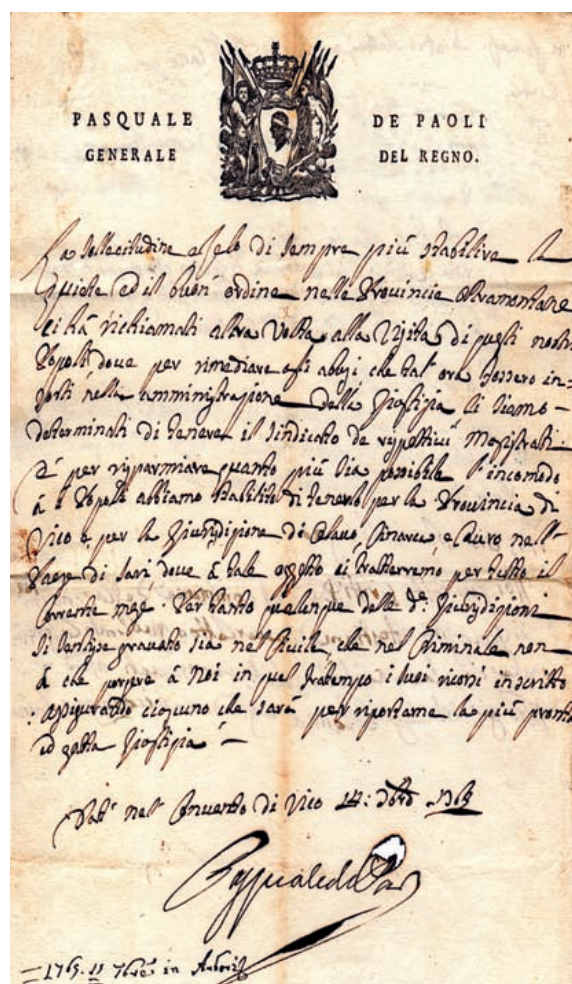 PASQUALE DE PAOLI
GENERALE DEL REGNO.
La sollecitudine e zelo di sempre più stabilire la
quiete ed il buon ordine nelle Provincie oltramontane
ci hà richiamati altra volta alla visita di quegli nostri
Popoli dove per rimediare agli abusi che tal' ora fossero in=
sorti nella amministrazione della Giustizia ci siamo
determinati di tenere il sindicato de rispettivi Magistrati.
E per risparmiare quanto più sia possibile l'incomodo
à i Popoli abbiamo stabilito di tenerlo per la Provincia di
Vico e per la Giurisdizione di Celavo, Cinarca e Cauro nell
Paese di Sarì dove à tale oggetto ci tratterremo per tutto il
corrente mese. Per tanto qualunque delle de. Giurisdizioni
si sentisse gravato sia nel Civile, che nel Criminale non
à che porgere à Noi in quel fratempo i suoi ricorsi in scritto
assigurando ciascuno che sarà per riportarne la più pronta
ed esatta Giustizia —
nel Convento di Vico 14: 1765
Pasquale de Pa
— 1765. 11 in